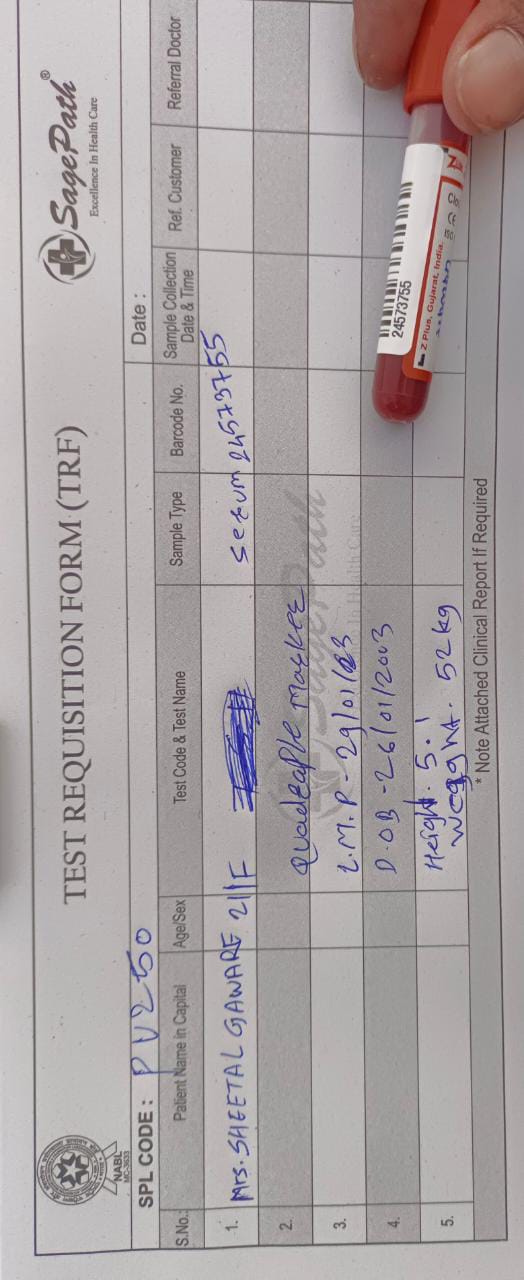 NABL
MC-3633
TEST REQUISITION FORM (TRF)
SagePath®
Excellence In Health Care
SPL CODE : PU250
Date :
S.No.: Patient Name in Capital Age/Sex Test Code & Test Name Sample Type Barcode No. Sample Collection Date & Time Ref. Customer Referral Doctor
1. Mrs. SHEETAL GAWARE 21/F serum 24573755
2. Quadraple Marker
3. L.M.P - 29/01/
4. D.OB - 26/01/2003
5. Height. 5.'
Weight. 52 kg
* Note Attached Clinical Report If Required
SagePath
In Health Care
24573755
Z Plus, Gujarat, India.